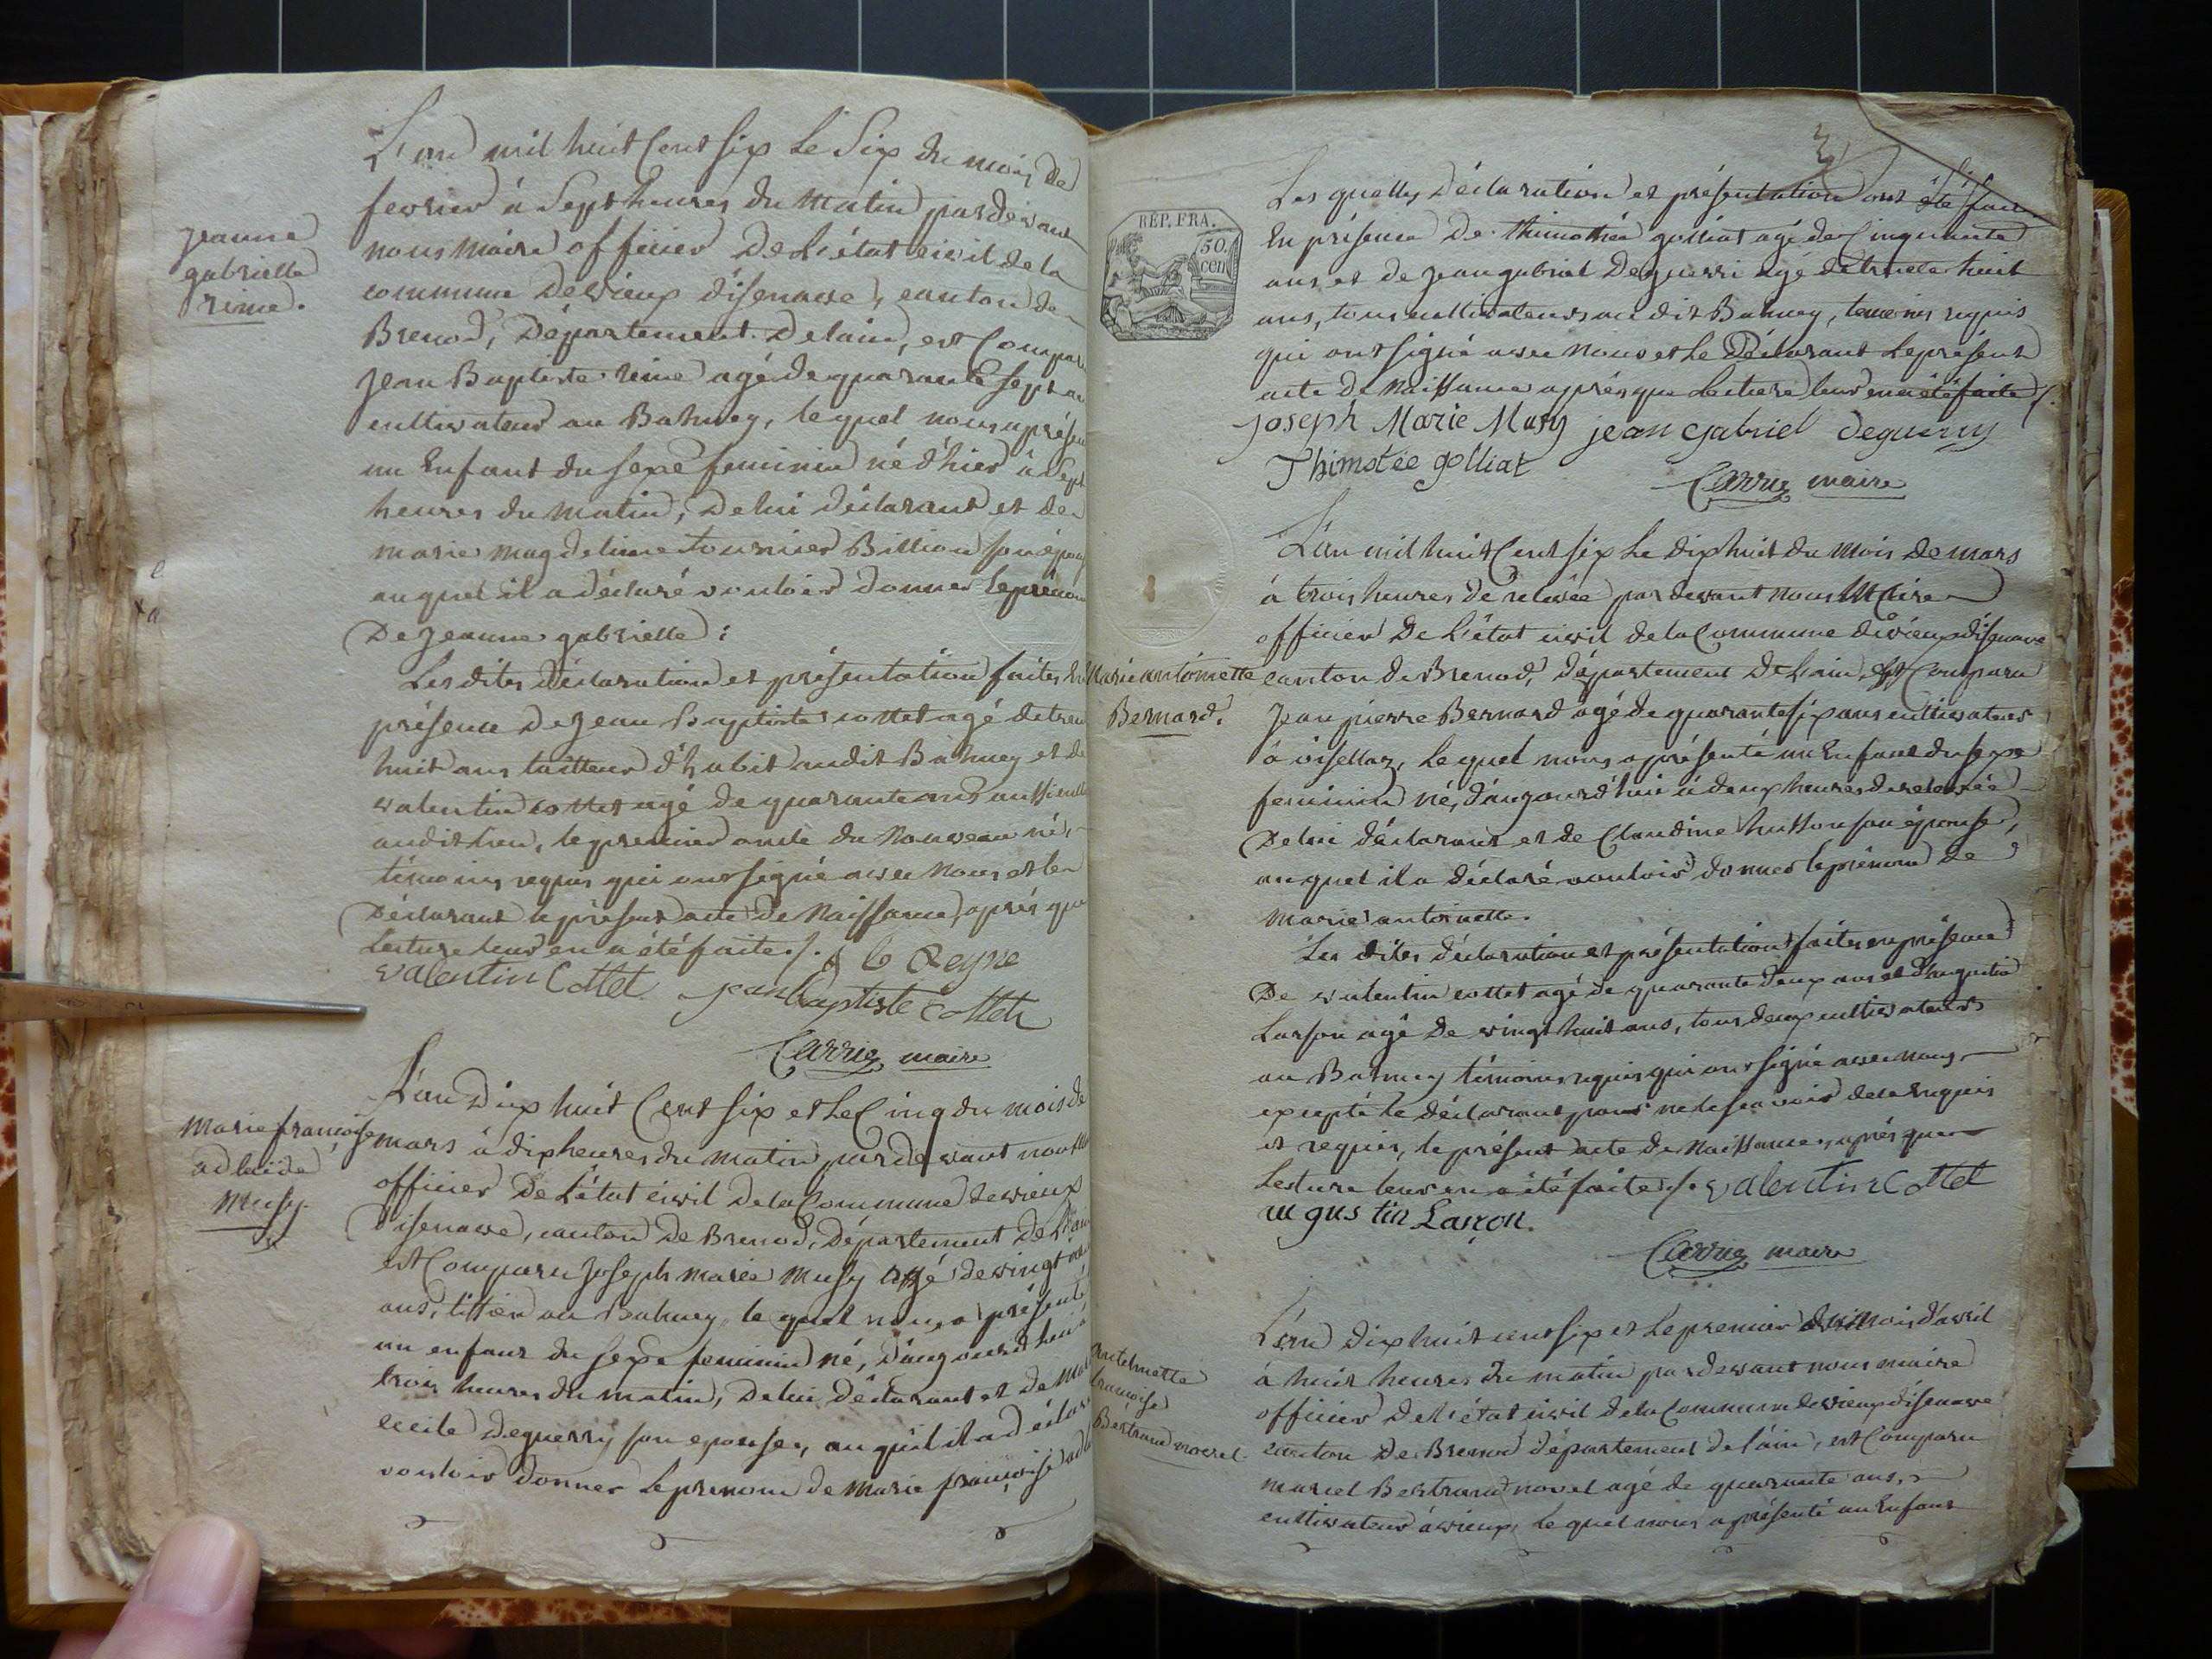 L'an mil huit cent six le six du mois de
fevrier à sept heures du matin pardevant
nous maire officier de l'état civil de la
commune de vieux d'isenave, canton de
Brenod, Département de lain, est compar
jean Baptiste reine agé de quarante sept an
cultivateur au Balmey, lequel nous a présen
un Enfant du sexe feminin né d'hier à sept
heures du matin, de lui déclarant et de
marie magdeleine tournier Billion son épou
auquel il a déclaré vouloir donner le préno
de jeanne gabrielle :
Les dites déclaration et présentation faites En
présence de jean Baptiste cottet agé de tren
huit ans tailleur d'habit audit Balmey et de
valentin cottet agé de quarante ans aussi cult
audit lieu, le premier oncle du nouveau né,
témoins requis qui ont signé avec nous et le
Déclarant le présent acte de naissance, après que
lecture leur en a été faite ./.
jeanne
gabrielle
reine.
j b Reyne
valentin Cottet jean baptiste Cottet
Carrier maire
L'an dix huit cent six et le cinq du mois de
mars à dix heures du matin pardevant nous M
officier de l'état civil de la commune de vieux
d'isenave, canton de Brenod, département de L'ain
est comparu joseph marie musy agé de vingt
ans, au Balmey, lequel nous a présenté
un enfant du sexe feminin né, d'aujourd'hui à
trois heures du matin, de lui déclarant et de mar
cecile deguerry son epouse, au quel il a déclar
vouloir donner le prenom de marie françoise adl
marie françoise
adlaïde
musy.
Les quelles déclaration et présentation ont été fait
En présence de thimothée golliat agé de cinquante
ans et de jean gabriel deguerri agé de trente huit
ans, tous cultivateurs au dit Balmey, temoins requis
qui ont signé avec nous et le Déclarant le présent
acte de naissance après que lecture leur en a été faite ./.
RÉP. FRA.
50
cen
joseph Marie Musy jean gabriel deguerry
Thimotée golliat
Carrier maire
L'an mil huit cent six le dix huit du mois de mars
à trois heures de relevée par devant nous Maire
officier de l'état civil de la commune de vieux d'isenave
canton de Brenod, département de L'ain, est comparu
jean pierre Bernard agé de quarante six ans cultivateur
à oisellaz, lequel nous a présenté un Enfant du sexe
feminin né, d'aujourd'hui à deux heures de relevée
de lui déclarant et de Claudine husson son épouse,
au quel il a déclaré vouloir donner le prénom de
marie antoinette.
Les dites déclaration et présentation faites en présence
de valentin cottet agé de quarante deux ans et d'augustin
Larson agé de vingt huit ans, tous deux cultivateurs
au Balmey témoins requis qui ont signé avec nous
excepté le déclarant pour ne le sçavoir de ce enquis
et requis, le présent acte de naissance, après que
lecture leur en a été faite ./. valentin Cottet
augustin Larçon.
Carrier maire
Marie antoinette
Bernard.
L'an dix huit cent six et le premier du mois d'avril
à huit heures du matin par devant nous maire
officier de l'état civil de la commune de vieux d'isenave
canton de Brenod département de l'ain, est comparu
marcel Bertrand novel agé de quarante ans,
cultivateur à vieux, lequel nous a présenté un Enfant
antelmette
françoise
Bertrand novel